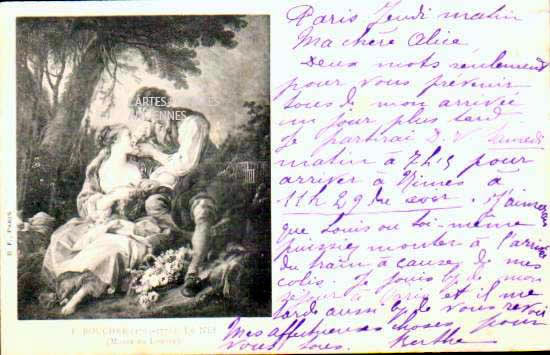 Paris Jeudi matin
Ma chère Alice
Deux mots seulement
pour vous prévenir
tous de mon arrivée
un jour plus tard
Je partirai D. V. Samedi
matin à 7h15 pour
arriver à Nimes à
11h 29 du soir. J'aimerais
que Louis ou toi-même
puissiez monter à l'arrivée
du train à cause de mes
colis. Je jouis de mon
séjour à Paris et il me
tarde aussi de vous revoir
Mes affectueuses choses pour
vous tous. Berthe
CARTES
ANCIENNES
B. F., PARIS
F. BOUCHER
(MUSÉE DU LOUVRE)